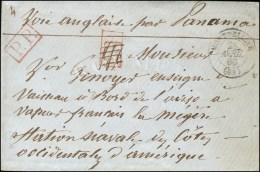 Voie anglaise par Panama
P.P.
Monsieur
Vor
Renoyer enseigne
Vaisseau à Bord de l'aviso a
vapeur français la Mégère
Station navale des Côtes
occidentales d'amérique.